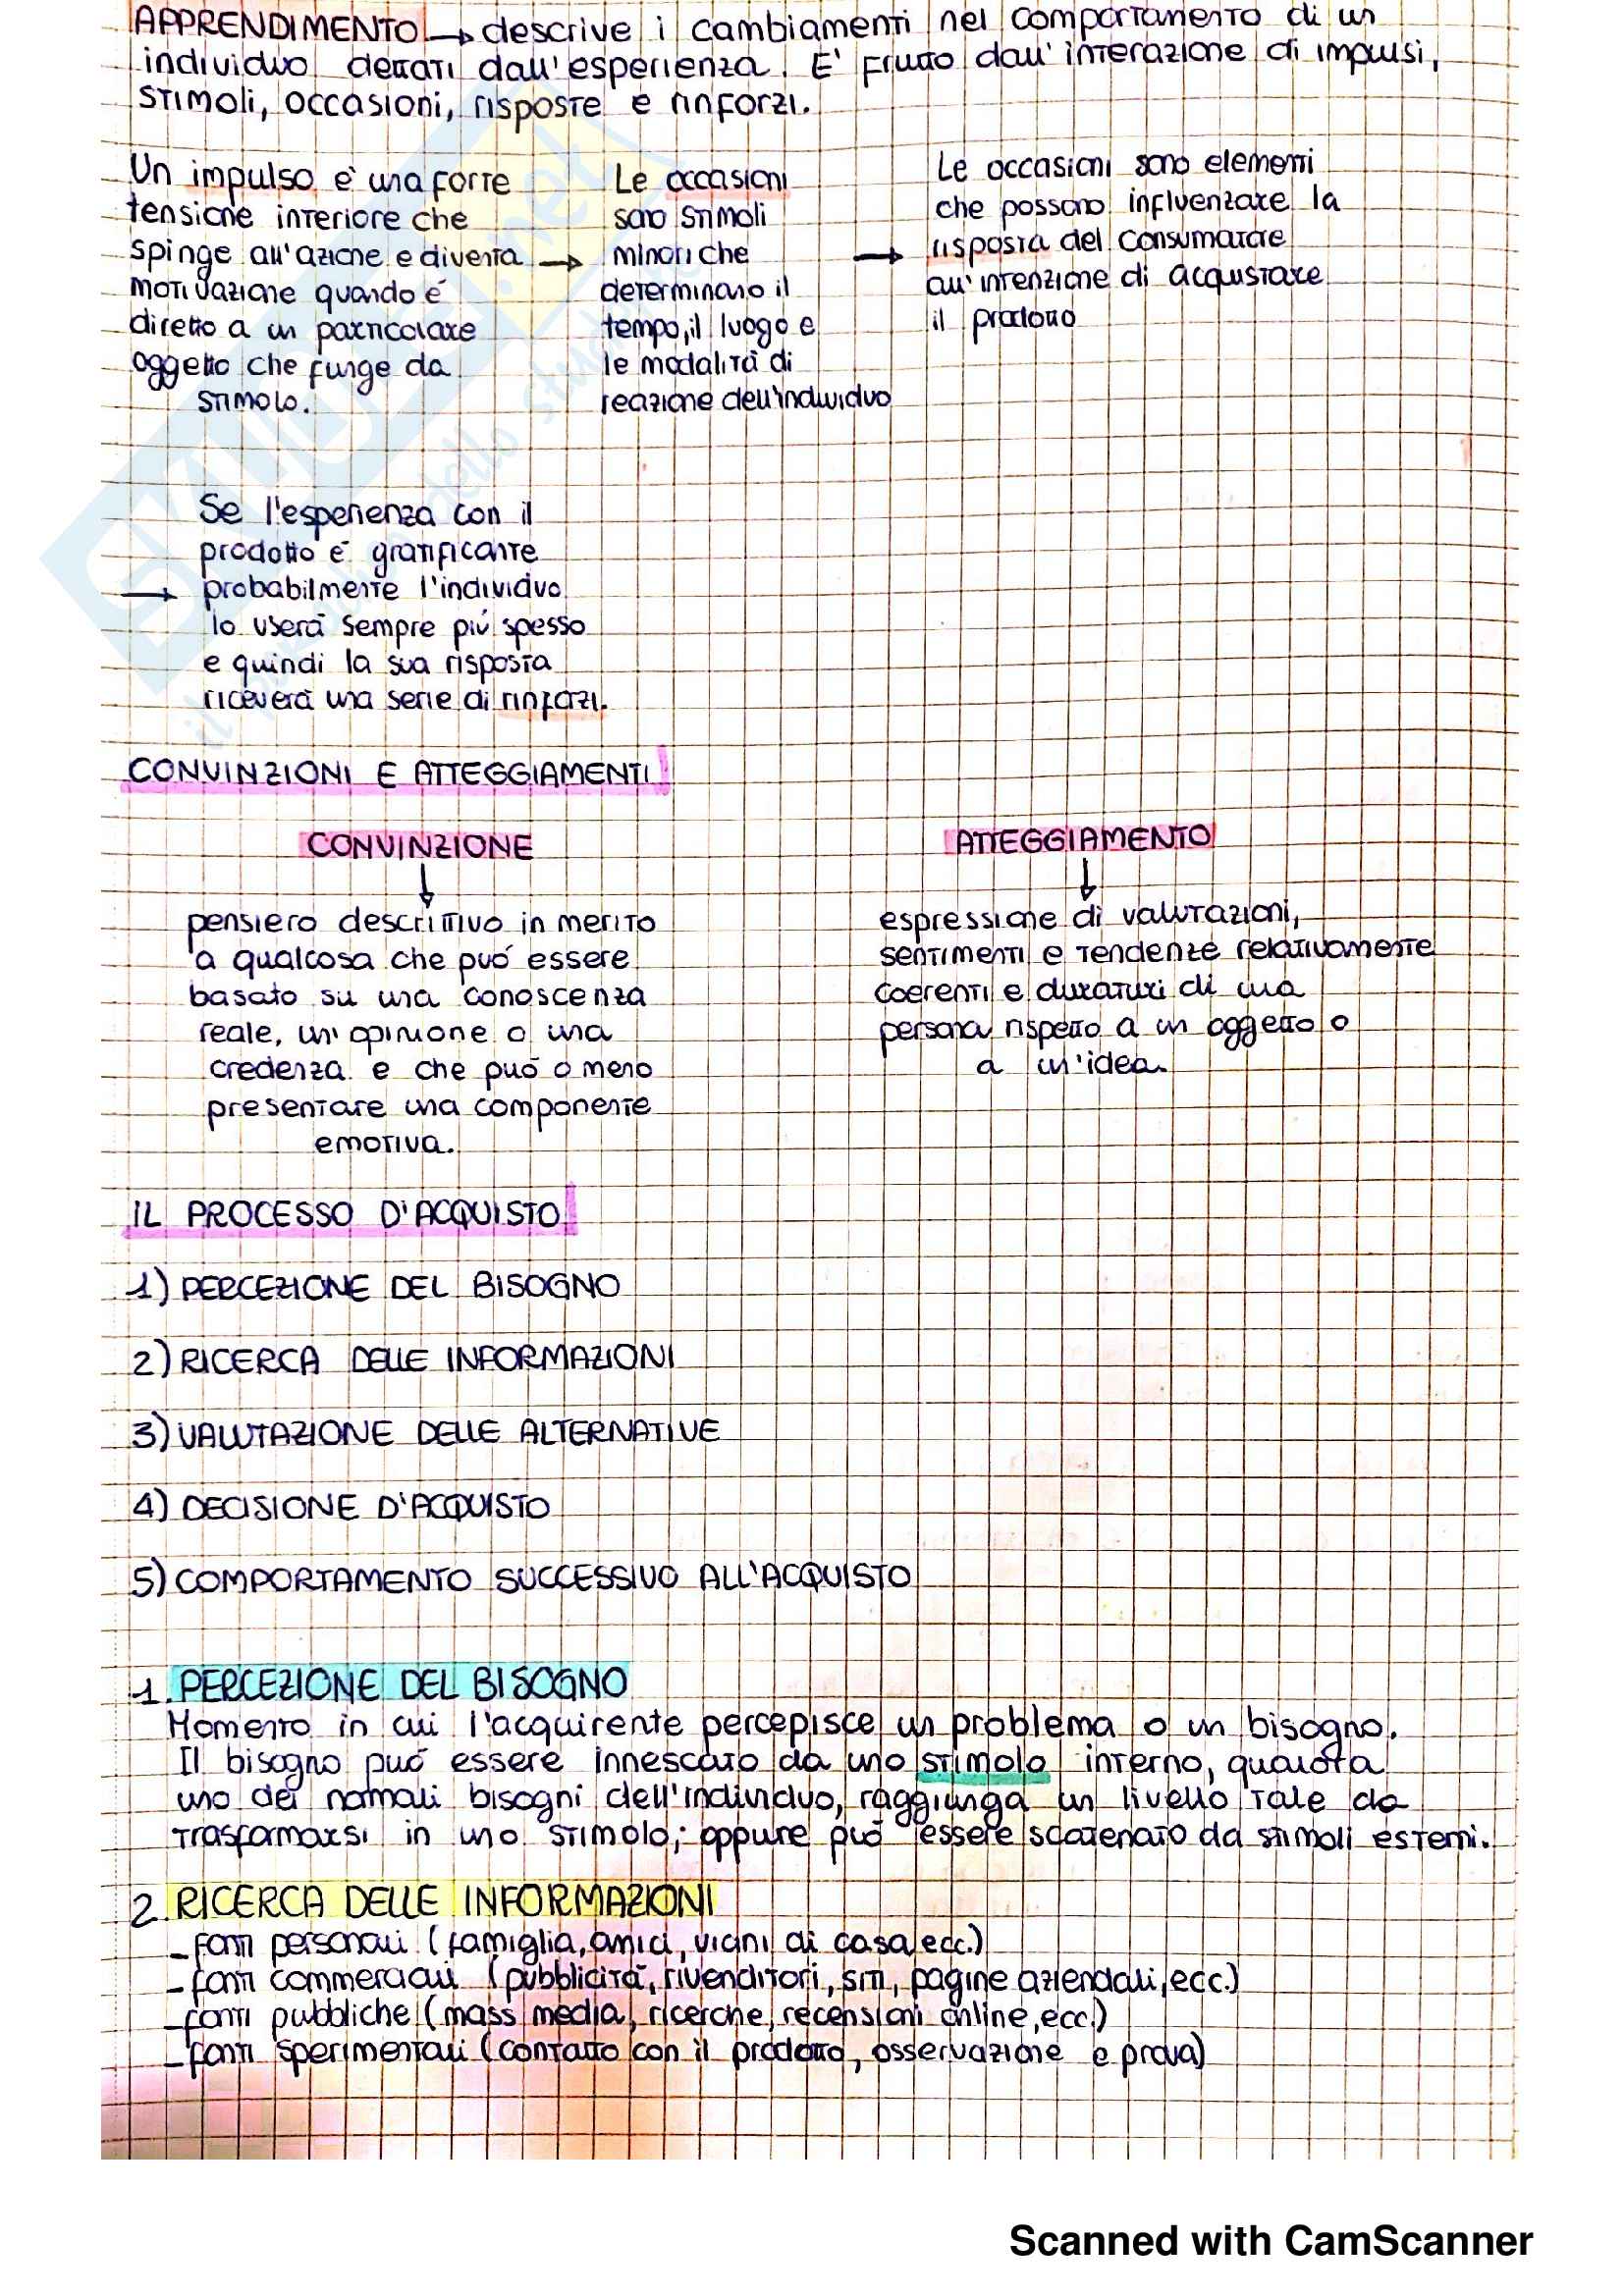 APPRENDIMENTO → descrive i cambiamenti nel comportamento di un
individuo dettati dall'esperienza. E' frutto dall'interazione di impulsi,
stimoli, occasioni, risposte e rinforzi.
Un impulso è una forte
tensione interiore che
spinge all'azione e diventa →
motivazione quando è
diretto a un particolare
oggetto che funge da
stimolo.
Le occasioni
sono stimoli
minori che
determinano il
tempo, il luogo e
le modalità di
reazione dell'individuo
Le occasioni sono elementi
che possono influenzare la
→ risposta del consumatore
all'intenzione di acquistare
il prodotto
Se l'esperienza con il
prodotto è gratificante
→ probabilmente l'individuo
lo userà sempre più spesso
e quindi la sua risposta
riceverà una serie di rinforzi.
CONVINZIONI E ATTEGGIAMENTI
CONVINZIONE
↓
pensiero descrittivo in merito
a qualcosa che può essere
basato su una conoscenza
reale, un'opinione o una
credenza e che può o meno
presentare una componente
emotiva.
ATTEGGIAMENTO
↓
espressione di valutazioni,
sentimenti e tendenze relativamente
coerenti e duraturi di una
persona rispetto a un oggetto o
a un'idea.
IL PROCESSO D'ACQUISTO
1) PERCEZIONE DEL BISOGNO
2) RICERCA DELLE INFORMAZIONI
3) VALUTAZIONE DELLE ALTERNATIVE
4) DECISIONE D'ACQUISTO
5) COMPORTAMENTO SUCCESSIVO ALL'ACQUISTO
1. PERCEZIONE DEL BISOGNO
Momento in cui l'acquirente percepisce un problema o un bisogno.
Il bisogno può essere innescato da uno stimolo interno, qualora
uno dei normali bisogni dell'individuo, raggiunga un livello tale da
trasformarsi in uno stimolo; oppure può essere scatenato da stimoli esterni.
2. RICERCA DELLE INFORMAZIONI
- fonti personali (famiglia, amici, vicini di casa, ecc.)
- fonti commerciali (pubblicità, rivenditori, siti, pagine aziendali, ecc.)
- fonti pubbliche (mass media, ricerche, recensioni online, ecc.)
- fonti sperimentali (contatto con il prodotto, osservazione e prova)
Scanned with CamScanner